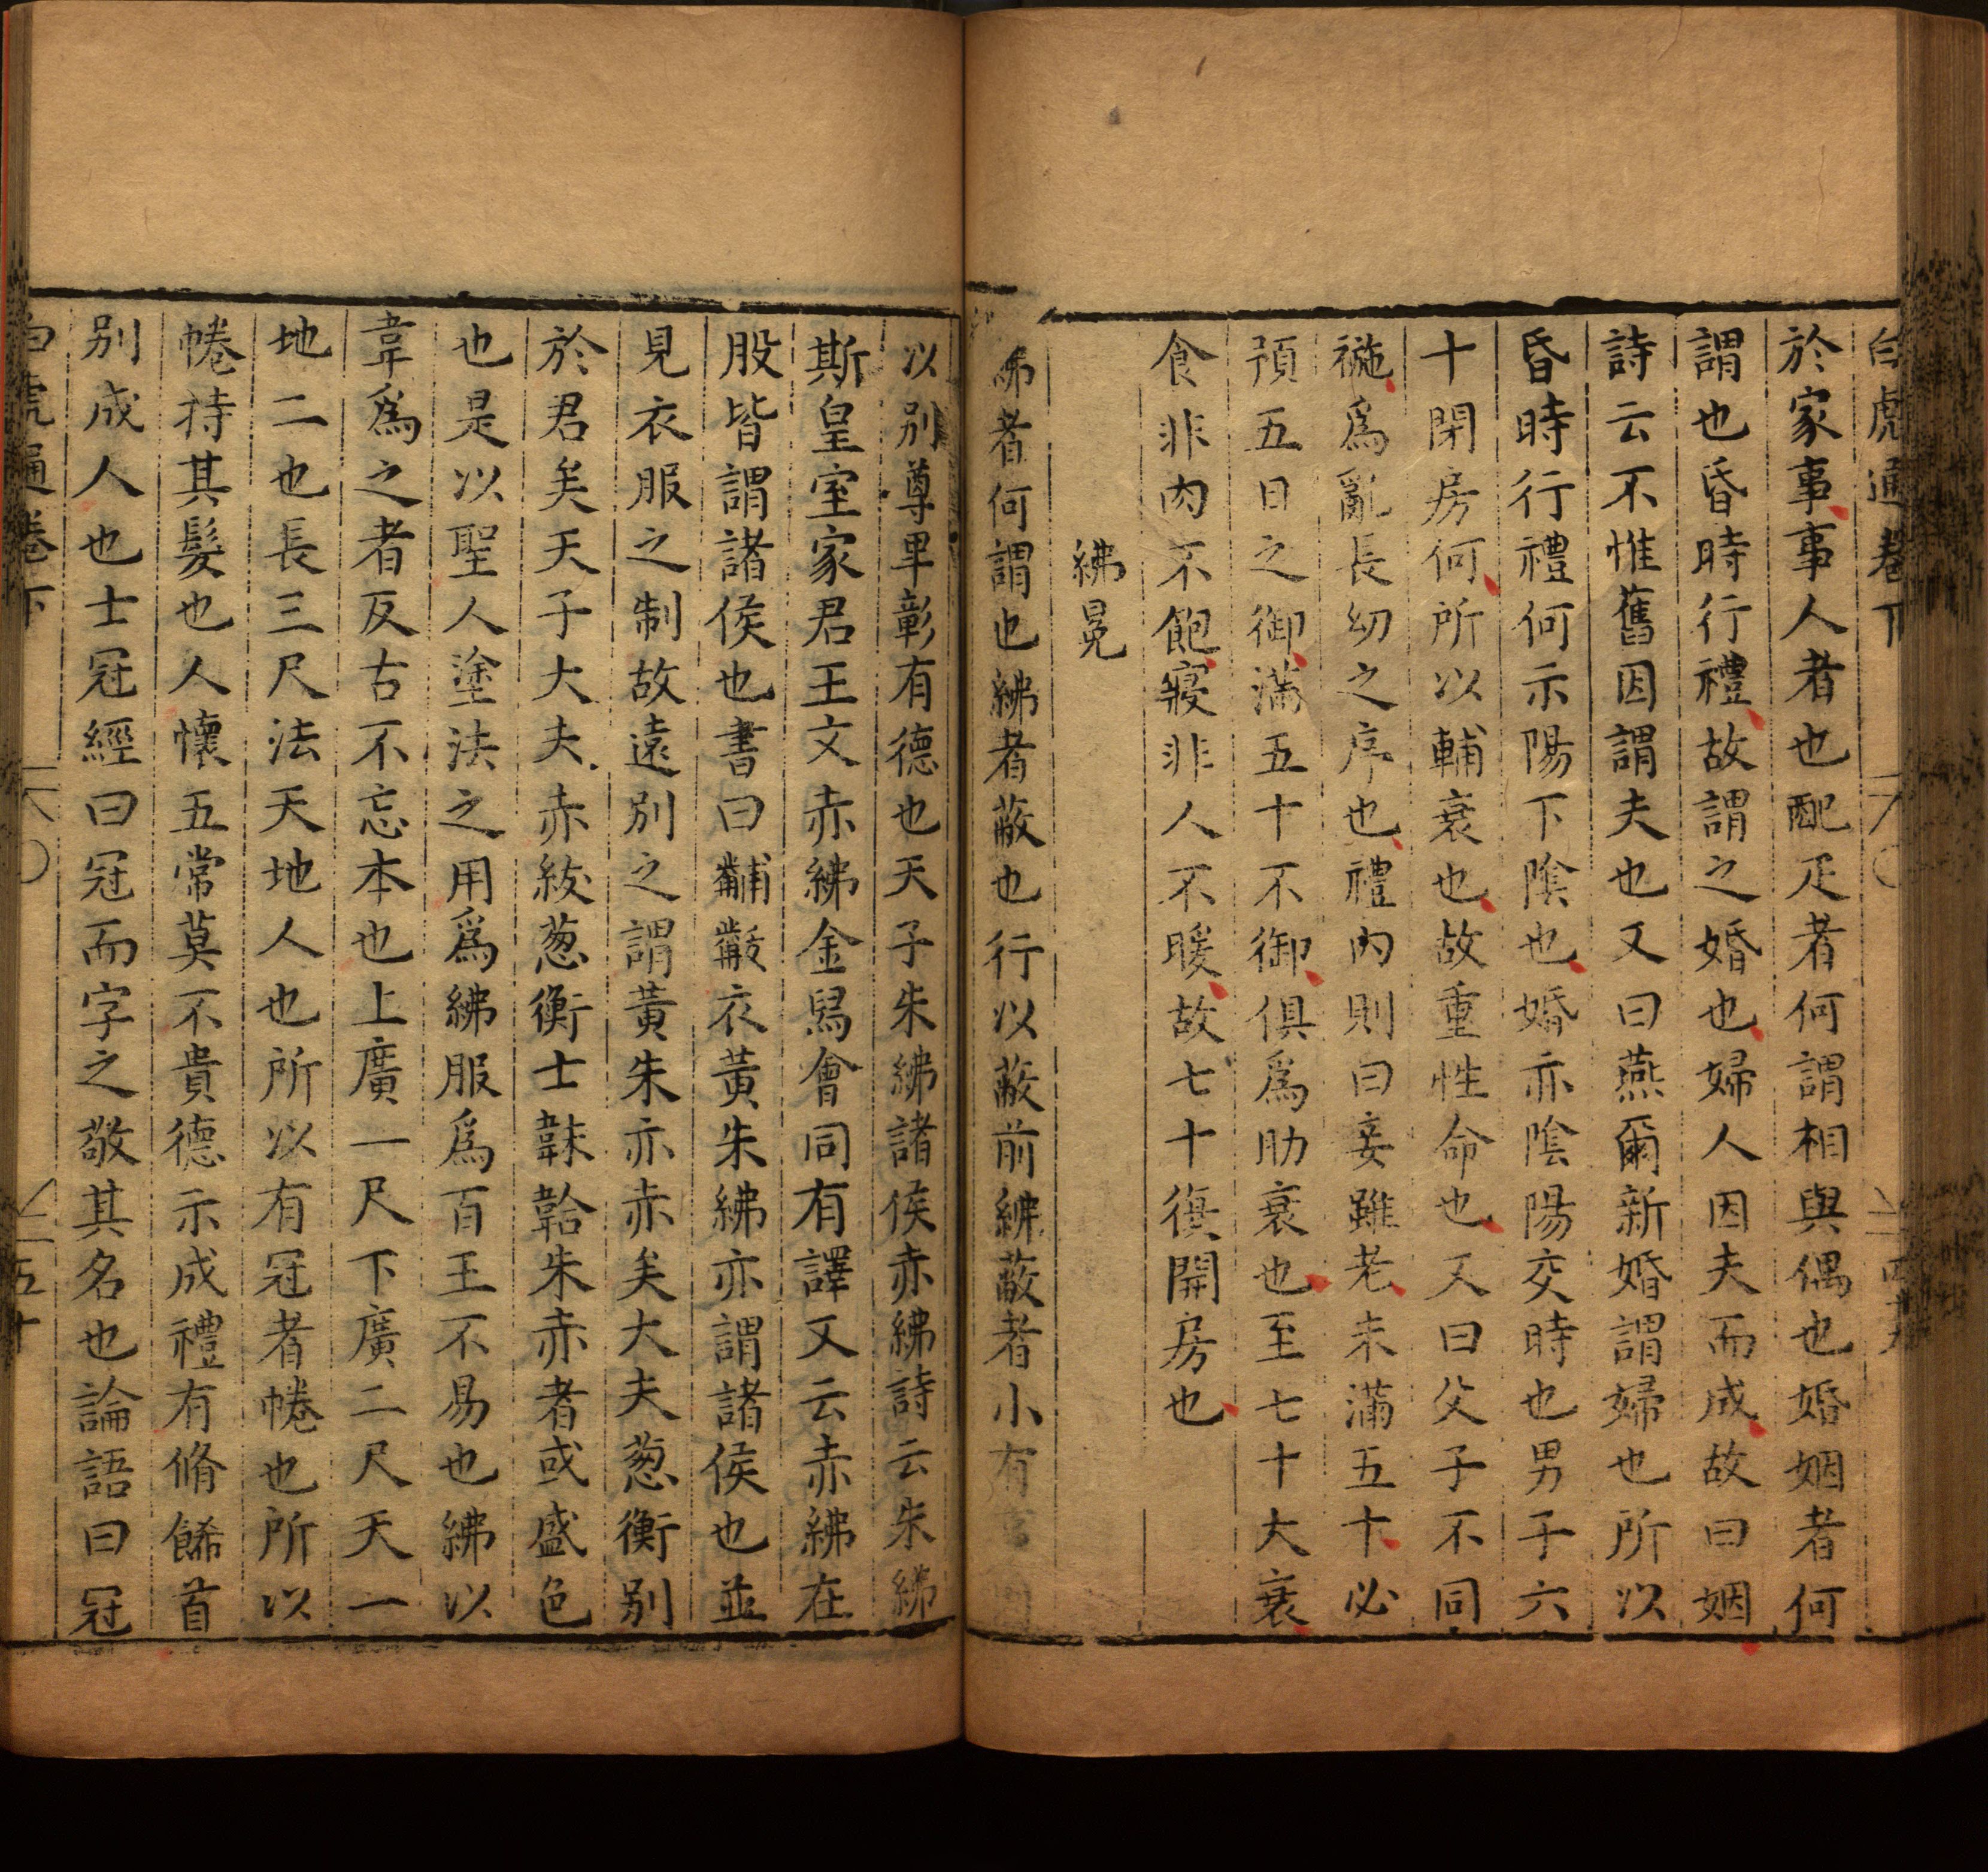 白虎通卷下
於家事事人者也配疋者何謂相與偶也婚姻者何
謂也昏時行禮故謂之婚也婦人因夫而成故曰姻
詩云不惟舊因謂夫也又曰燕爾新婚謂婦也所以
昏時行禮何示陽下陰也婚亦陰陽交時也男子六
十閉房何所以輔衰也故重性命也又曰父子不同
褷爲亂長幼之序也禮內則曰妾雖老未滿五十必
預五日之御滿五十不御俱爲助衰也至七十大衰
食非肉不飽寢非人不暖故七十復開房也
紼冕
紼者何謂也紼者蔽也行以蔽前紼蔽者小有
以別尊卑彰有德也天子朱紼諸侯赤紼詩云朱紼
斯皇室家君王文赤紼金舄會同有譯又云赤紼在
股皆謂諸侯也書曰黼黻衣黃朱紼亦謂諸侯也並
見衣服之制故遠別之謂黃朱亦赤矣大夫葱衡別
於君矣天子大夫赤紱葱衡士韎韐朱赤者或盛色
也是以聖人塗法之用爲紼服爲百王不易也紼以
韋爲之者反古不忘本也上廣一尺下廣二尺天一
地二也長三尺法天地人也所以有冠者帣也所以
帣持其髮也人懷五常莫不貴德示成禮有脩餙首
別成人也士冠經曰冠而字之敬其名也論語曰冠
白虎通卷下 五十